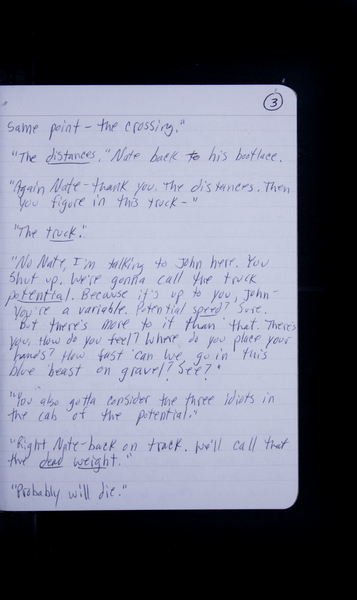 3
same point - the crossing."
"The distances." Nate back to his bootlace.
"Again Nate - thank you. The distances. Then
you figure in this truck -"
"The truck."
"No Nate, I'm talking to John here. You
shut up. We're gonna call the truck
potential. Because it's up to you, John -
You're a variable. Potential speed? Sure.
But there's more to it than that. There's
you. How do you feel? Where do you place your
hands? How fast can we go in this
blue beast on gravel? See?"
"You also gotta consider the three idiots in
the cab of the potential."
"Right Nate - back on track. We'll call that
the dead weight."
"Probably will die."